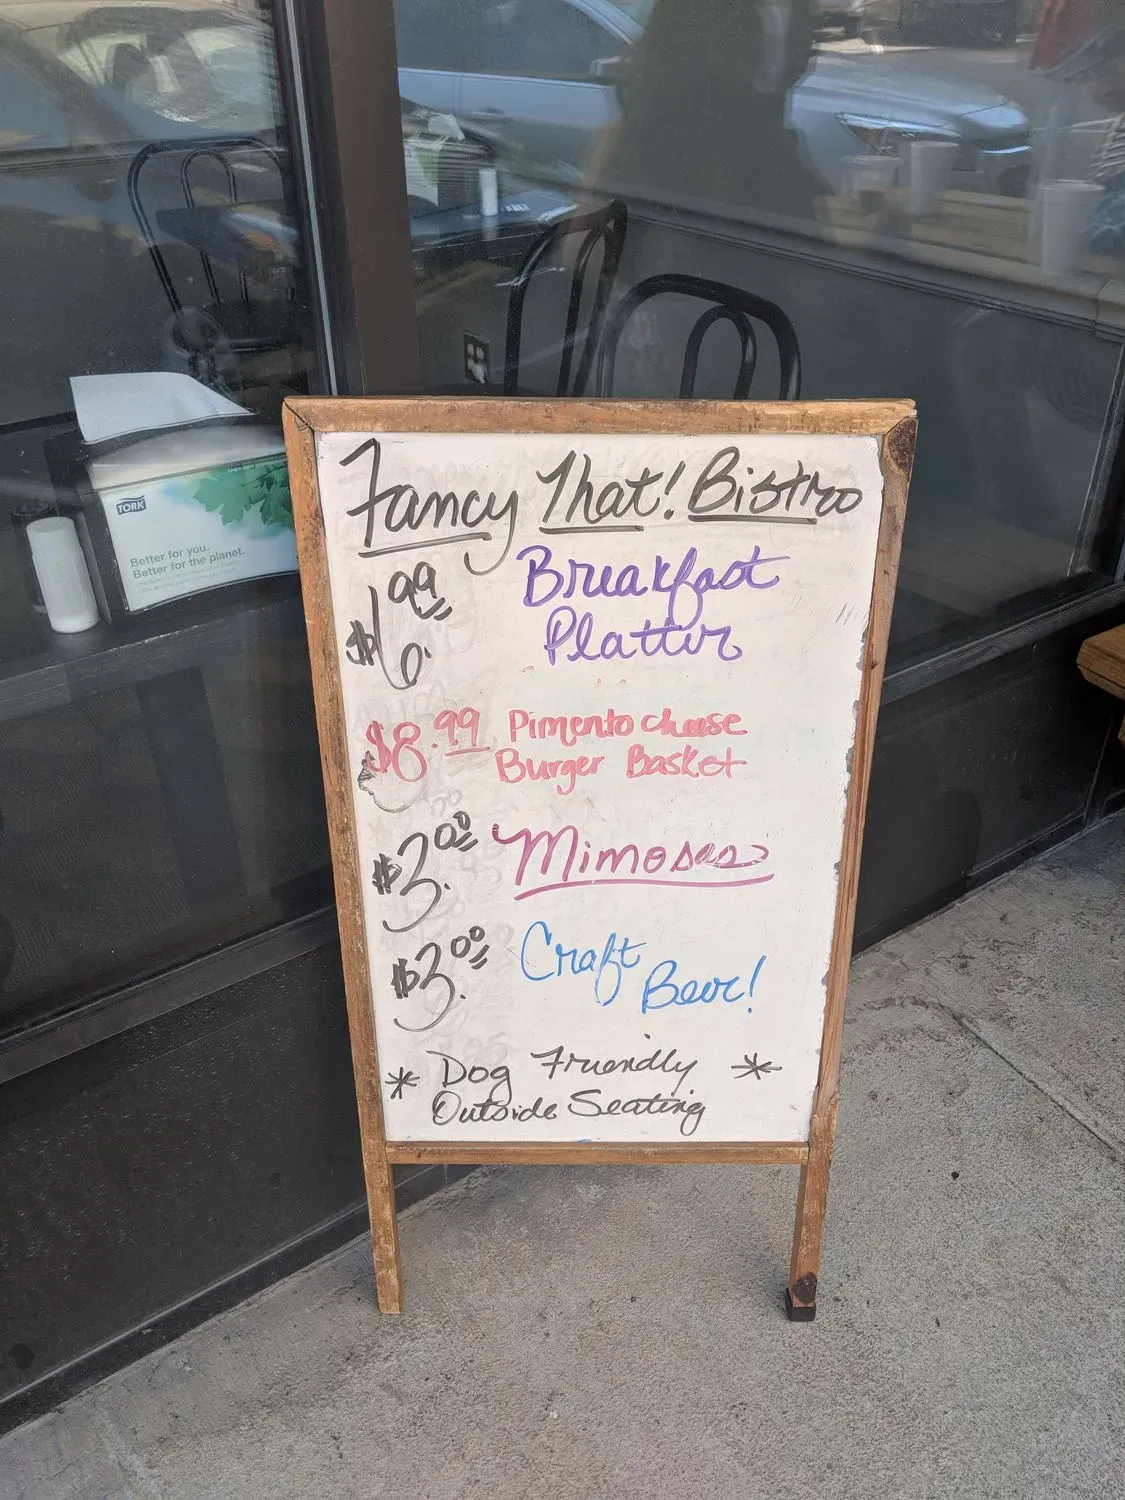 Fancy That! Bistro
$6.99 Breakfast
Platter
$8.99 Pimento cheese
Burger Basket
$3.00 Mimosas
$3.00 Craft
Beer!
* Dog Friendly *
Outside Seating
TORK
Better for you.
Better for the planet.